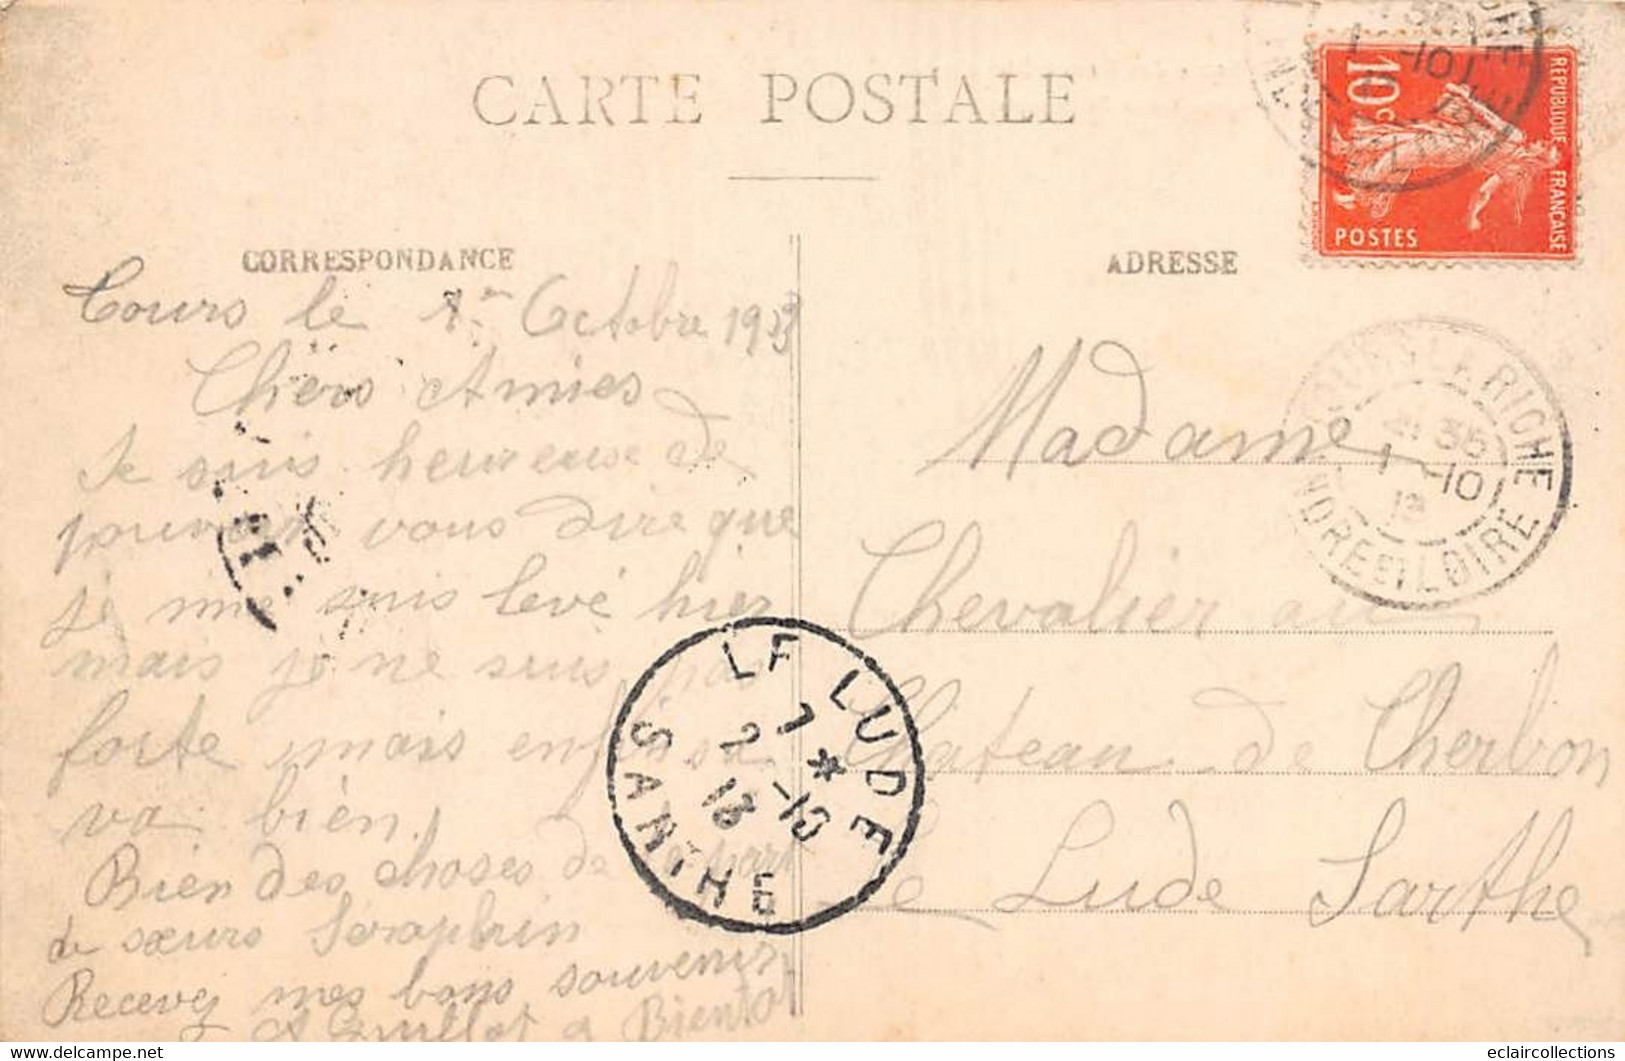 CARTE POSTALE
CORRESPONDANCE
ADRESSE
REPUBLIQUE FRANÇAISE
10c
POSTES
Tours le 1er Octobre 1913
Chers Amies
Je suis heureuse de
pouvoir vous dire que
je me suis levé hier
mais je ne suis pas
forte mais enfin sa
va bien.
Bien des choses de la part
de sœurs Seraphin
Recevez mes bons souvenirs
A Guillot a Bientot
Madame
Chevalier au
Château de Cherbon
Le Lude Sarthe
LE RICHE
35
1 -10
13
INDRE ET LOIRE
LE LUDE
7 *
2 -10
13
SARTHE
eclaircollections
www.delcampe.net